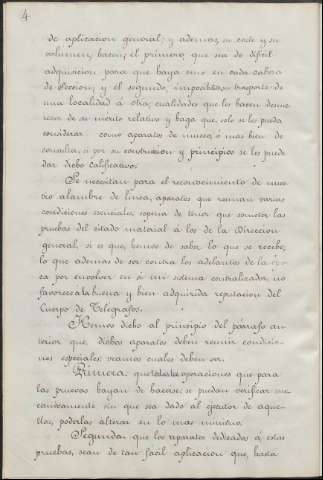 4
de aplicacion general, y ademas, su coste y su
volúmen, hacen, el primero, que sea de dificil
adquisicion para que haya uno en cada cabeza
de Seccion, y el segundo, imposibilita su trasporte de
una localidad á otra; cualidades que lo hacen desme-
recer de su mérito relativo y haga que, solo se les pueda
considerar como aparatos de museo, ó mas bien de
consulta, si por su construccion y principios se les puede
dar dicho calificativo.
Se necesitan para el reconocimiento de nues-
tro alambre de línea, aparatos que reunan varias
condiciones esenciales, sopena de tener que someter las
pruebas del estado material á los de la Direccion
general, si es que, hemos de saber lo que se recibe,
lo que ademas de ser contra los adelantos de la épo-
ca por envolver en si un sistema centralizador, no
favorece á la buena y bien adquirida reputacion del
Cuerpo de Telégrafos.
Hemos dicho al principio del párrafo an-
terior que, dichos aparatos deben reunir condicio-
nes especiales veamos cuales deben ser.
Primera: que todas las operaciones que para
las pruebas hayan de hacerse, se puedan verificar me-
canicamente sin que sea dado al ejecutor de aque-
llas, poderlas alterar en lo mas mínimo.
Segunda: que los aparatos dedicados á estas
pruebas, sean de tan facil aplicacion que, hasta